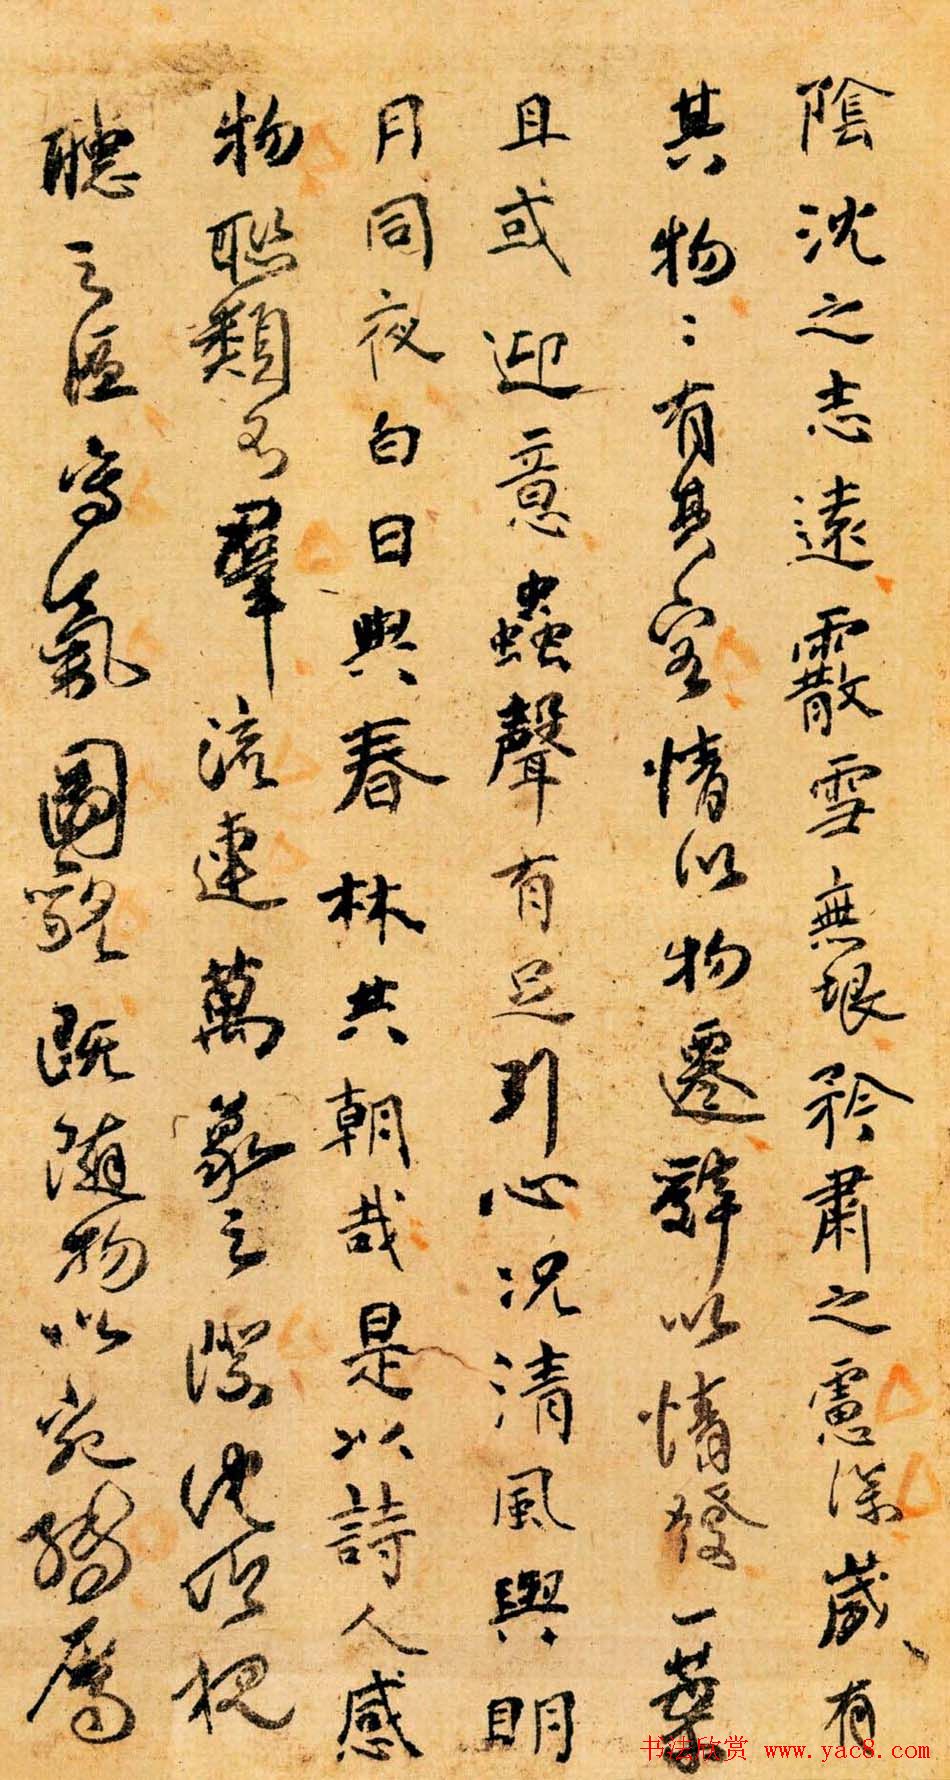 陰沈之志遠霰雪無垠矜肅之慮深歲有
其物〻有其容情以物遷辭以情發一葉
且或迎意蟲聲有足引心況清風與明
月同夜白日與春林共朝哉是以詩人感
物聯類羣流連萬象之際沈吟視
聽之區寫氣圖貌既隨物以宛轉属
书法欣赏 www.yac8.com